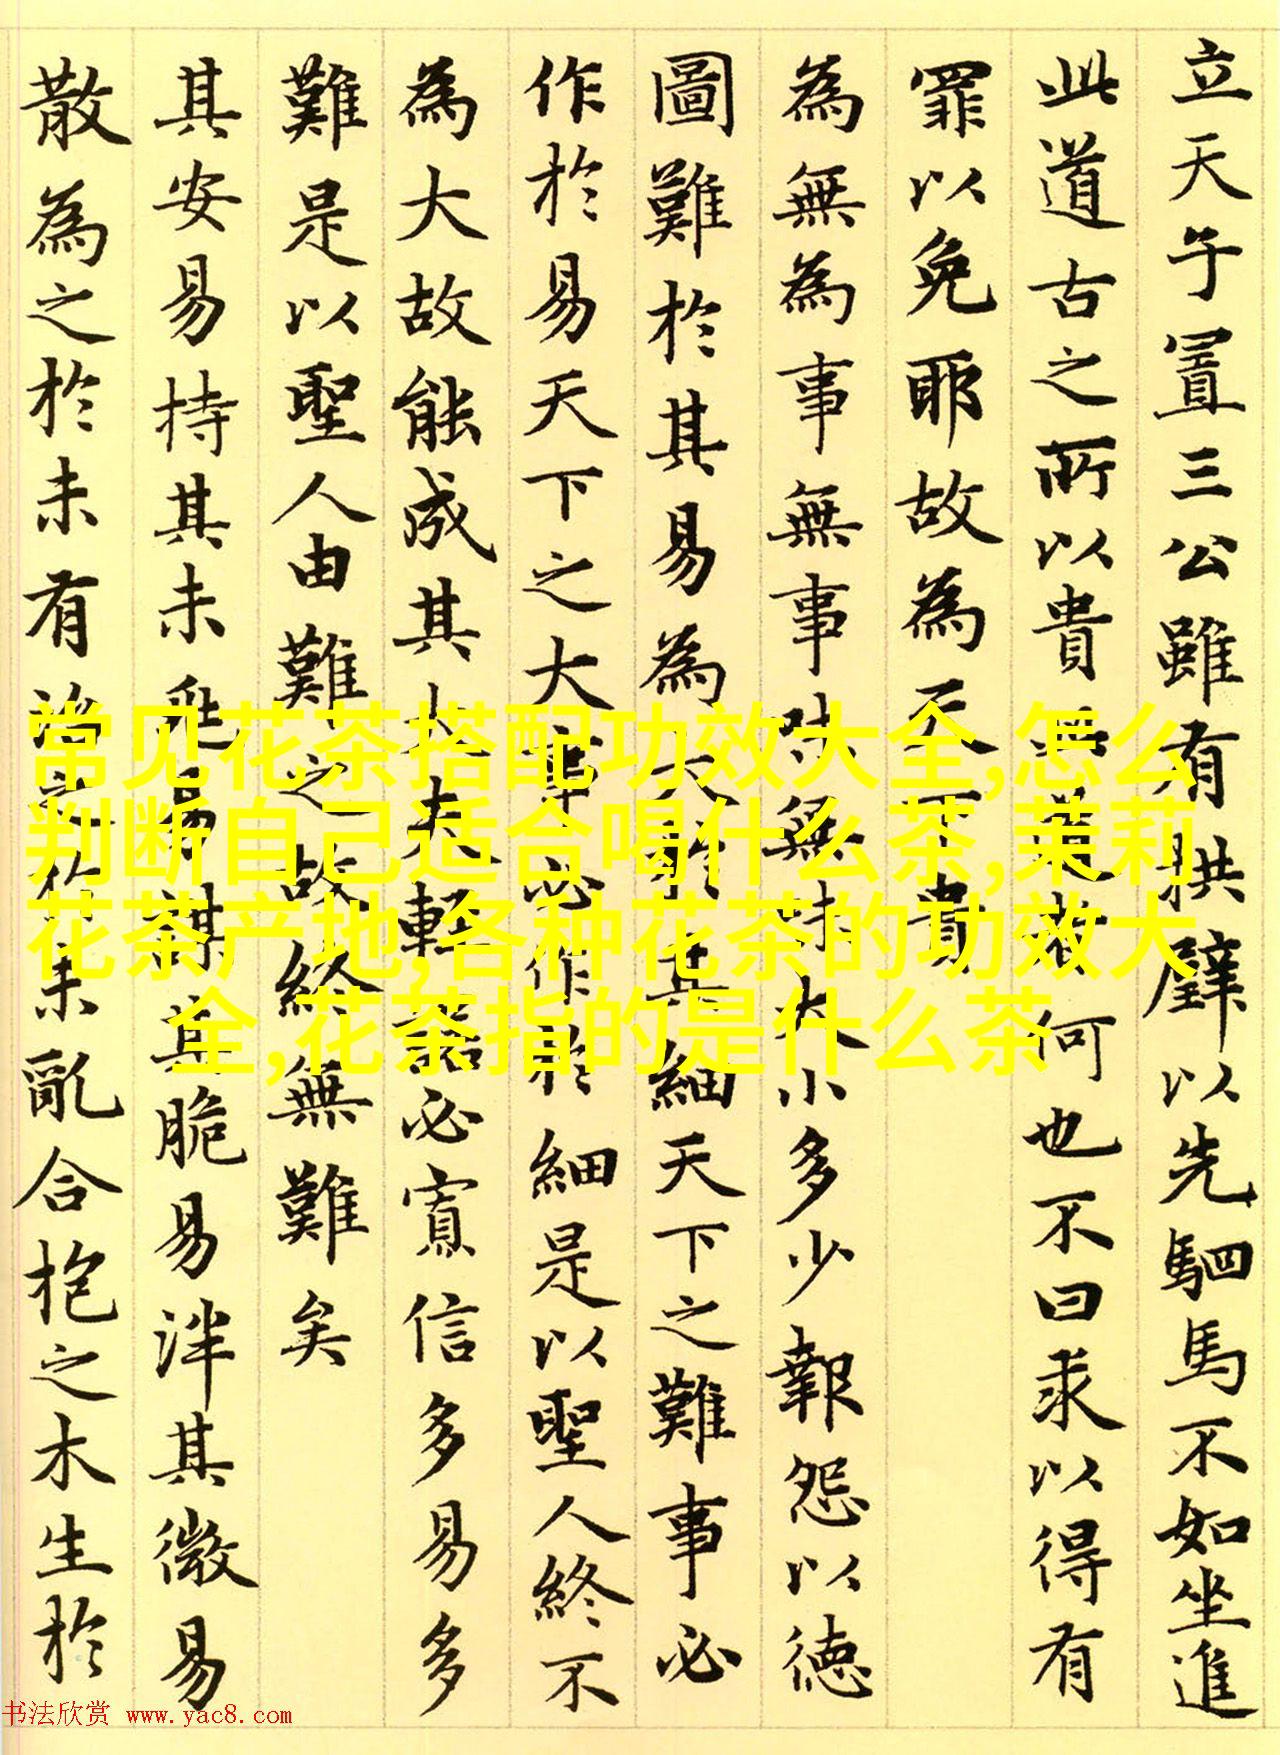 立天子置三公雖有拱璧以先駟馬不如坐進
此道古之所以貴此道者何也不曰求以得有
罪以免耶故為天下貴
為無為事無事味無味大小多少報怨以德
圖難於其易為大於其細天下之難事必
作於易天下之大事必作於細是以聖人終不
為大故能成其大夫輕諾必寡信多易多
難是以聖人由難之故終無難矣
其安易持其未兆易謀其脆易泮其微易
散為之於未有治之於未亂合抱之木生於
常见花茶搭配功效大全,怎么
判断自己适合喝什么茶,茉莉
花茶产地,各种花茶的功效大
全,花茶指的是什么茶
书法欣赏 www.yac8.com